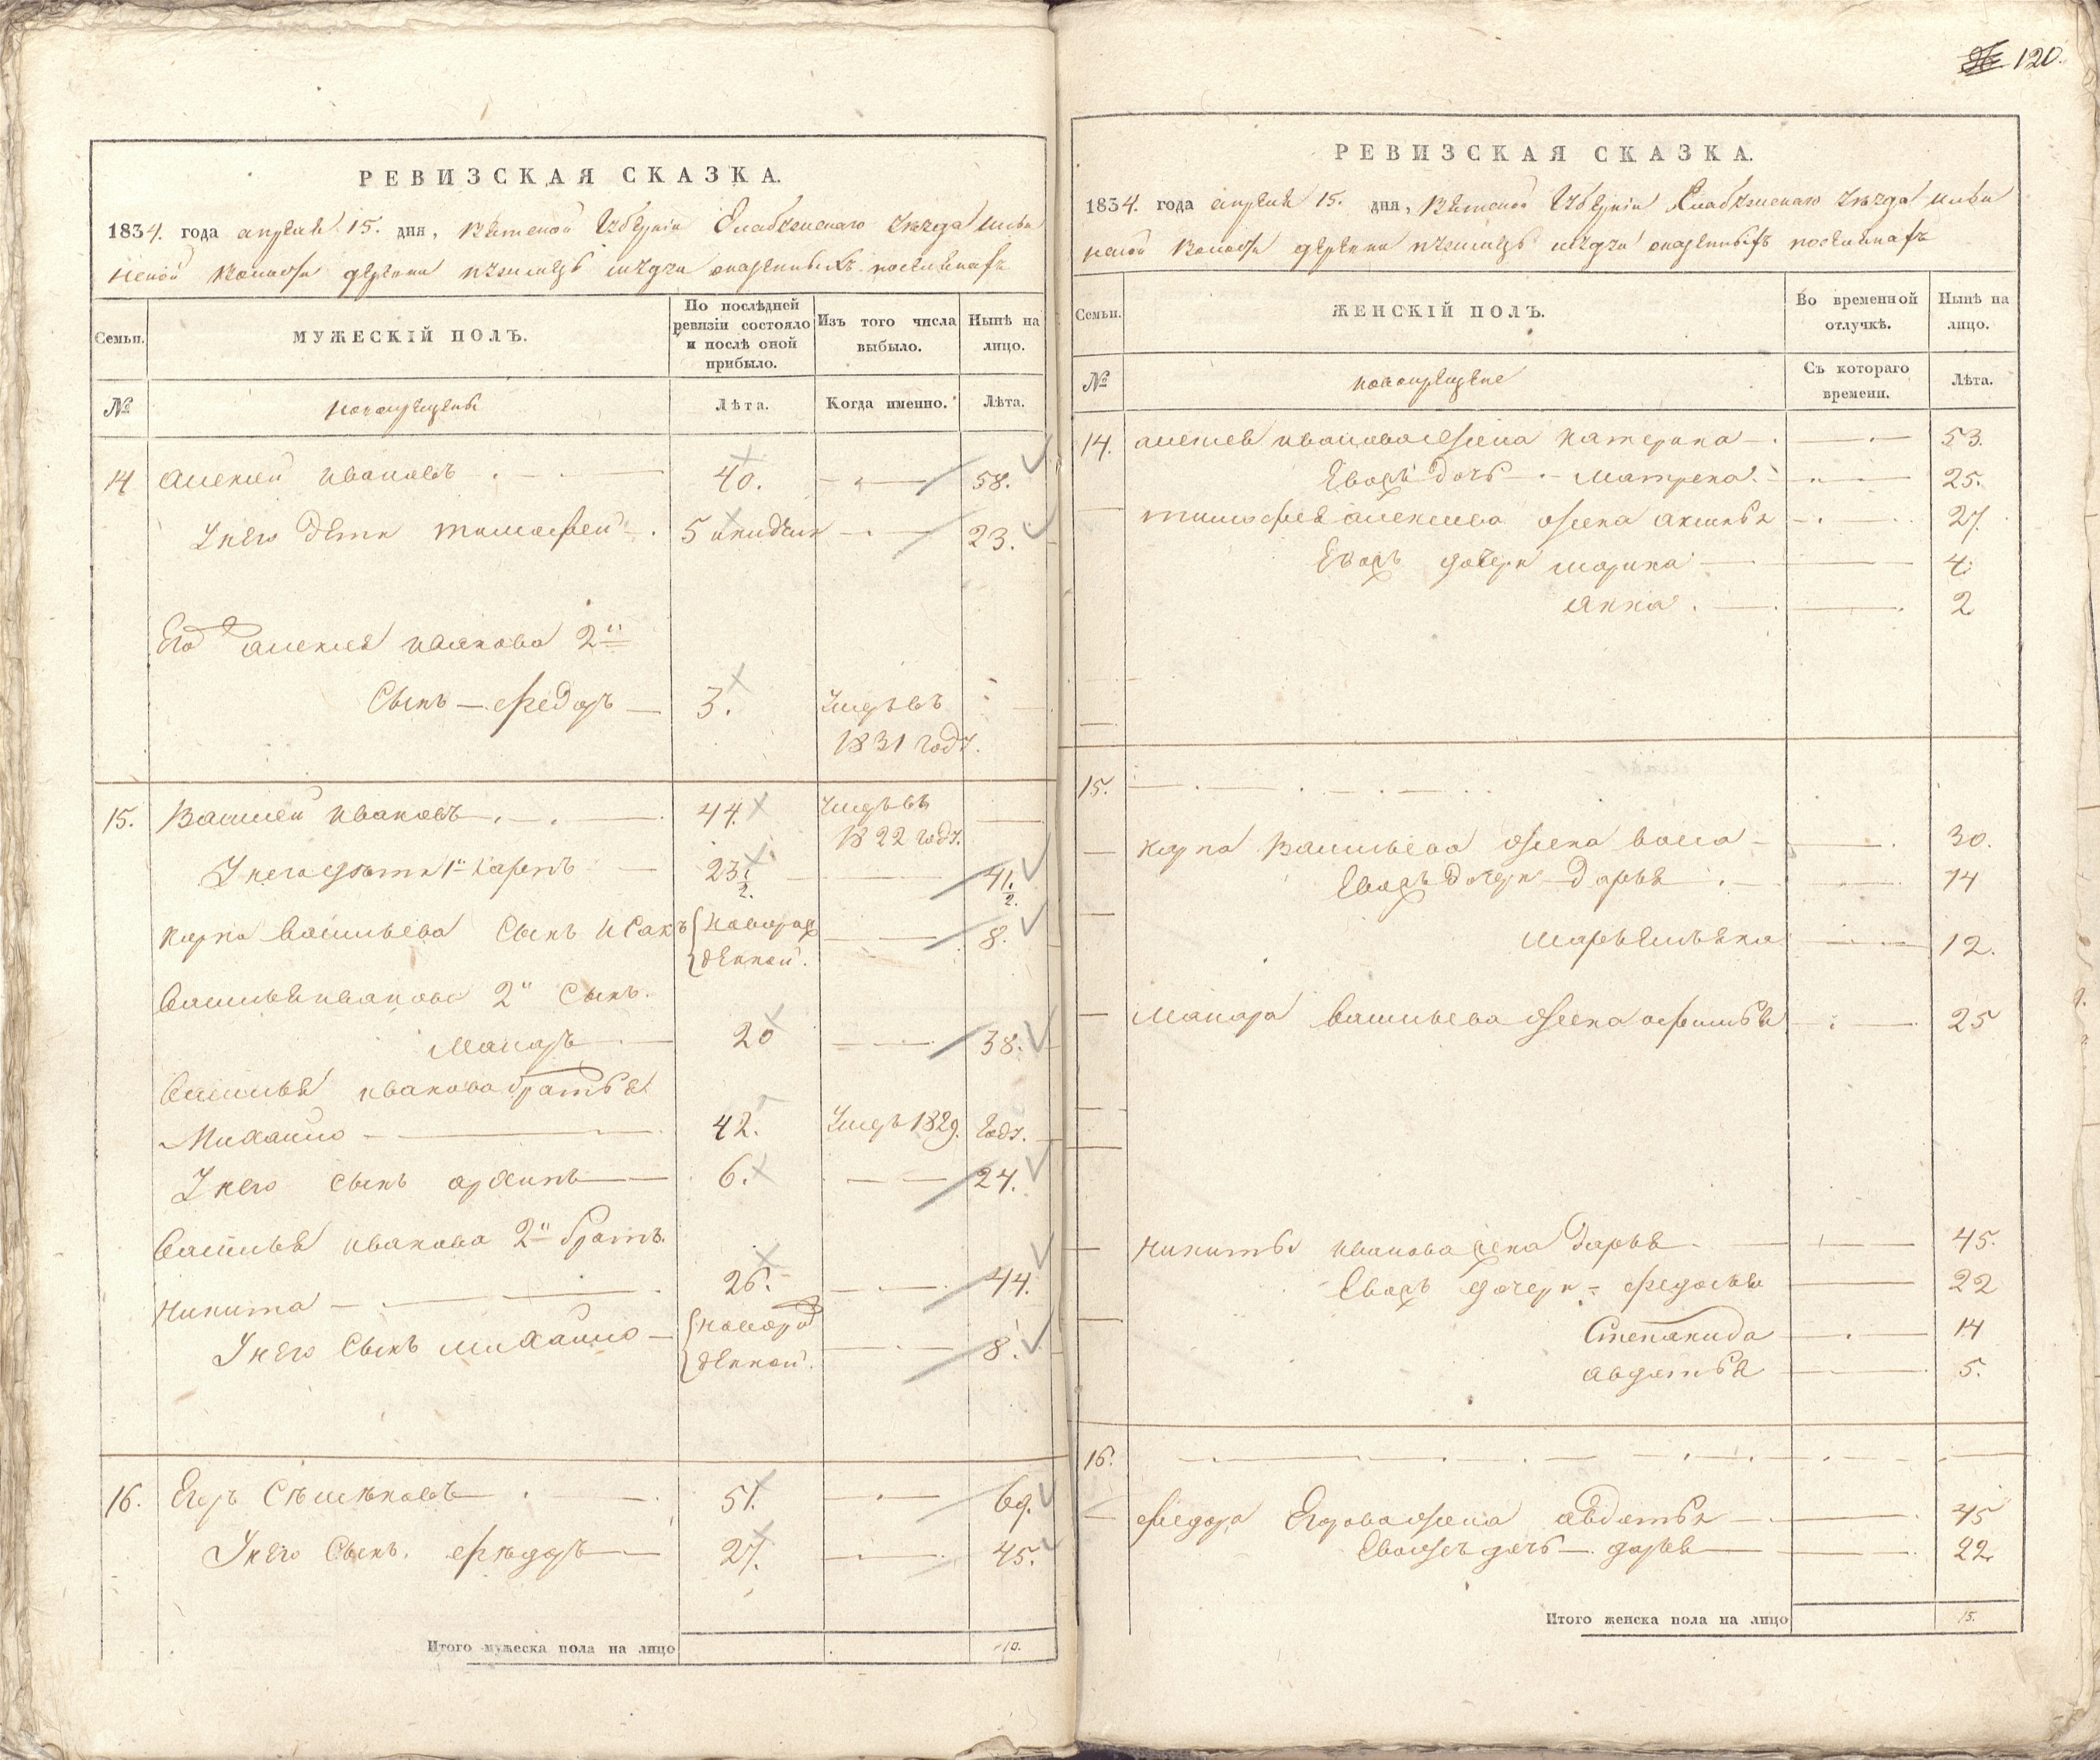 120.
РЕВИЗСКАЯ СКАЗКА.
1834. года апреля 15. дня, Вятской Губернiи Елабужскаго уезда
волости деревни казенныхъ поселянахъ
Семьи.
МУЖЕСКIЙ ПОЛЪ.
По послѣдней ревизiи состояло и послѣ оной прибыло.
Изъ того числа выбыло.
Нынѣ на лицо.
№
новокрещены
Лѣта.
Когда именно.
Лѣта.
14 алексей ивановъ 40. 58.
У него дети тимофей 5 23.
Его алексея иванова 2й
Сынъ федоръ 3. умре въ
1831 году.
15. Василей Ивановъ 44. умре въ
1822 году.
У него дети 1й карпъ 23 1/2. 41 1/2.
карпа васильева сынъ Исакъ новорож 8.
денной.
василья иванова 2й сынъ.
Макаръ 20 38.
василья иванова братья
Михайло 42. умре 1829. году.
У него сынъ архипъ 6. 24.
василья иванова 2й братъ.
никита 26. 44.
У него сынъ михайло новорож 8.
денной.
16. Егоръ Семеновъ 51. 69.
У него сынъ. федоръ 27. 45.
Итого мужеска пола на лицо 10.
РЕВИЗСКАЯ СКАЗКА.
1834. года апреля 15. дня, Вятской Губернiи Елабужскаго уезда
волости деревни казенныхъ поселянахъ
Семьи.
ЖЕНСКIЙ ПОЛЪ.
Во временной отлучкѣ.
Нынѣ на лицо.
№
новокрещене
Съ котораго времени.
Лѣта.
14. алексея иванова жена катерина 53.
Евожъ дочь матрена 25.
тимофея алексеева жена аксинья 27.
Евожъ дочери марина 4.
анна 2
15.
карпа васильева жена васса 30.
Евожъ дочери дарья 14
марьемьяна 12.
Макара васильева жена афимья 25
никиты иванова жена дарья 45.
Евожъ дочери федосья 22
Степанида 14
авдотья 5.
16.
федора Егорова жена авдотья 45
Евожъ дочь дарья 22.
Итого женска пола на лицо 15.